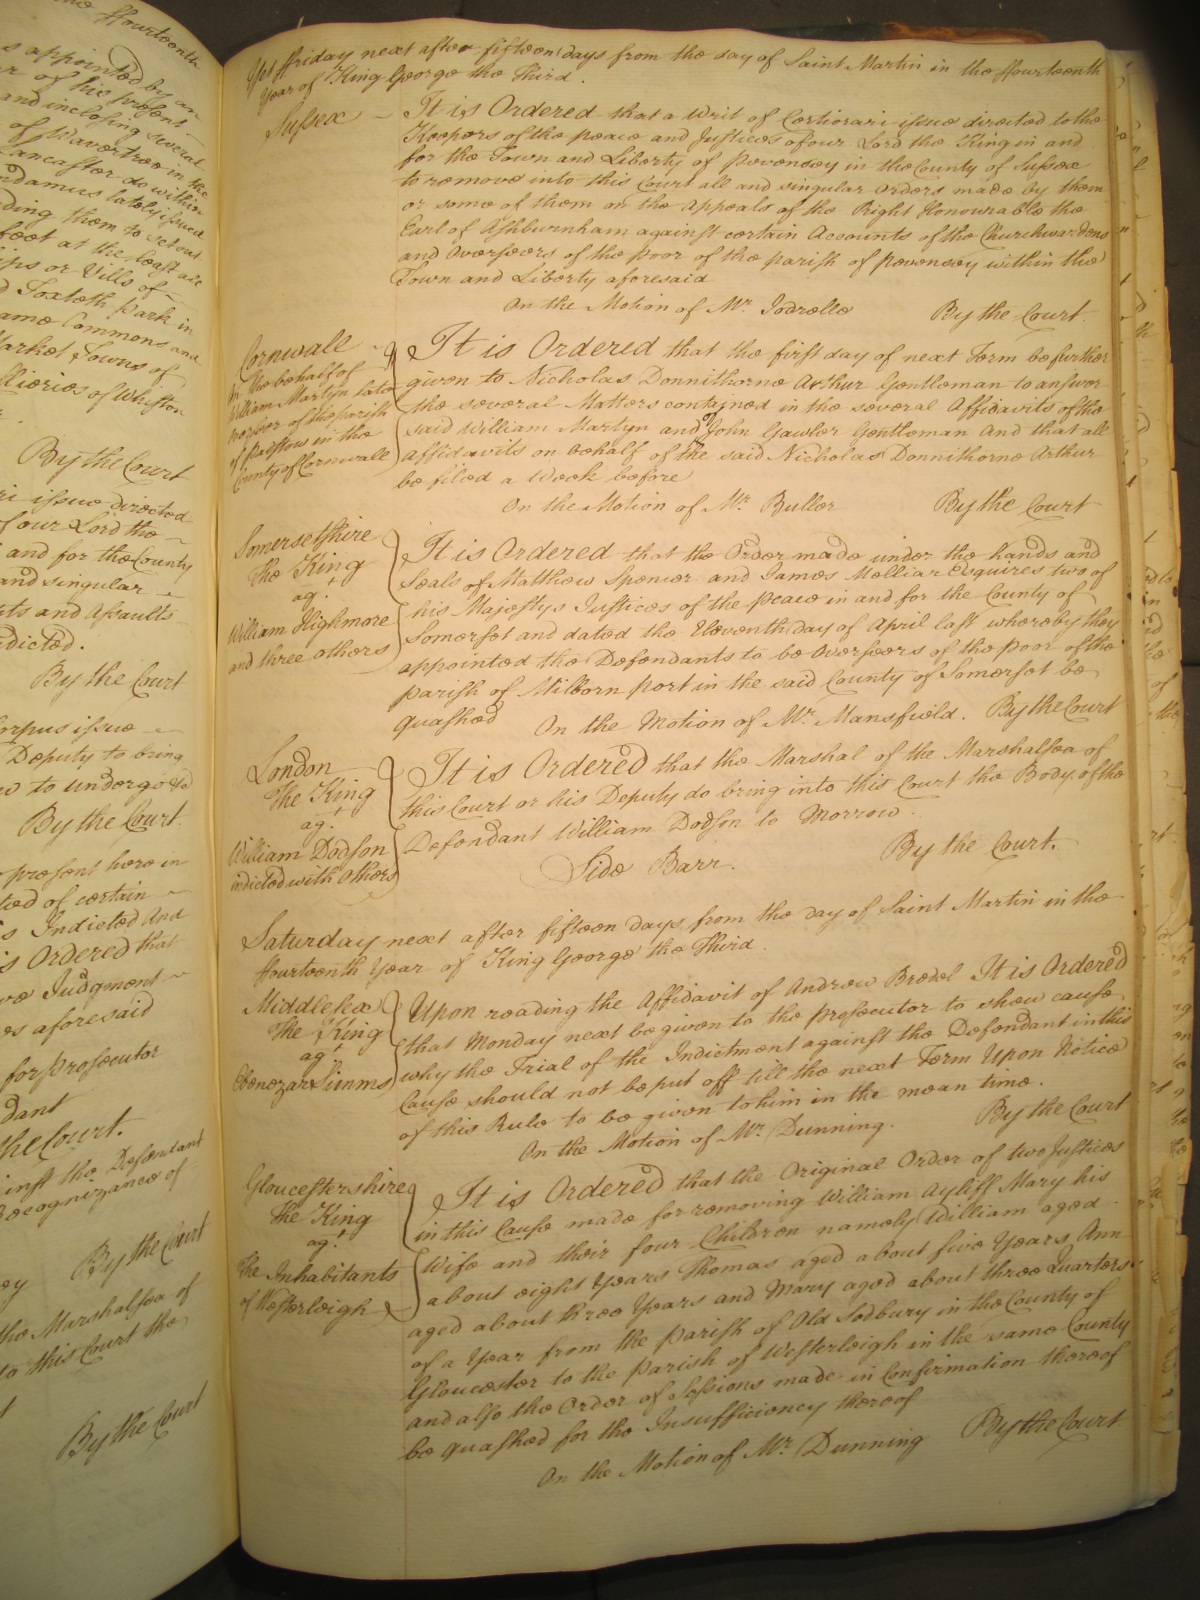 the ffourteenth
s appointed by an
r of his present
and inclosing several
of Wavertree in the
Lancaster do within
ndamus lately issued
ding them to set out
feet at the least all
ips or Vills of
d Toxteth Park in
ame Commons and
Market Towns of
llieries of Whiston
By the Court
ri issue directed
four Lord the
and for the County
and singular
ts and Assaults
dicted.
By the Court
orpus issue
Deputy to bring
w to undergo &c
By the Court.
present here in
ted of certain
is Indicted And
is Ordered that
ve Judgment
es aforesaid
for Prosecutor
dant
the Court.
inst the Defendant
Recognizance of
By the Court
ey
the Marshalsea of
to this Court the
By the Court
Yet ffriday next after fifteen days from the day of Saint Martin in the ffourteenth
Year of King George the Third.
Sussex It is Ordered that a Writ of Certiorari issue directed to the
Keepers of the peace and Justices of our Lord the King in and
for the Town and Liberty of Pevensey in the County of Sussex
to remove into this Court all and singular orders made by them
or some of them on the Appeals of the Right Honourable the
Earl of Ashburnham against certain Accounts of the Churchwardens
and Overseers of the poor of the parish of Pevensey within the
Town and Liberty aforesaid
On the Motion of Mr. Jodrelle By the Court.
Cornwall
In the behalf of
William Martyn late
of the parish
of Padstow in the
County of Cornwall
It is Ordered that the first day of next Term be further
given to Nicholas Donnithorne Arthur Gentleman to answer
the several Matters contained in the several Affidavits of the
said William Martyn and of John Gawler Gentleman And that all
Affidavits on behalf of the said Nicholas Donnithorne Arthur
be filed a Week before
On the Motion of Mr. Buller By the Court
Somersetshire
The King
agt.
William Highmore
and three others
It is Ordered that the Order made under the hands and
Seals of Matthew Spencer and James Melliar Esquires two of
his Majestys Justices of the peace in and for the County of
Somerset and dated the Eleventh day of April last whereby they
appointed the Defendants to be Overseers of the poor of the
parish of Milborn port in the said County of Somerset be
quashed On the Motion of Mr. Mansfield. By the Court
London
The King
agt.
William Dodson
indicted with others
It is Ordered that the Marshal of the Marshalsea of
this Court or his Deputy do bring into this Court the Body of the
Defendant William Dodson to Morrow.
Side Barr. By the Court.
Saturday next after fifteen days from the day of Saint Martin in the
ffourteenth Year of King George the Third.
Middlesex
The King
agt.
Ebenezar Simms
Upon reading the Affidavit of Andrew Bredel It is Ordered
that Monday next be given to the prosecutor to shew cause
why the Trial of the Indictment against the Defendant in this
Cause should not be put off till the next Term Upon Notice
of this Rule to be given to him in the mean time.
On the Motion of Mr. Dunning. By the Court
Gloucestershire
The King
agt.
The Inhabitants
of Westerleigh
It is Ordered that the Original Order of two Justices
in this Cause made for removing William Ayliff Mary his
Wife and their four Children namely William aged
about eight Years Thomas aged about five Years Ann
aged about three Years and Mary aged about three Quarters
of a Year from the parish of Old Sodbury in the County of
Gloucester to the parish of Westerleigh in the same County
and also the Order of Sessions made in Confirmation thereof
be quashed for the Insufficiency thereof
On the Motion of Mr. Dunning By the Court